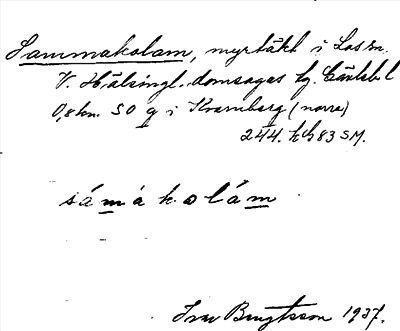 Sammakolam, myrtäkt i Los sn.
V. Hälsingl. domsagas tg. Gävlebl
0,8 km. SO g i Kramberg (norra)
244. kh 83 SM.
sámákolám
Ivar Bengtsson 1937.